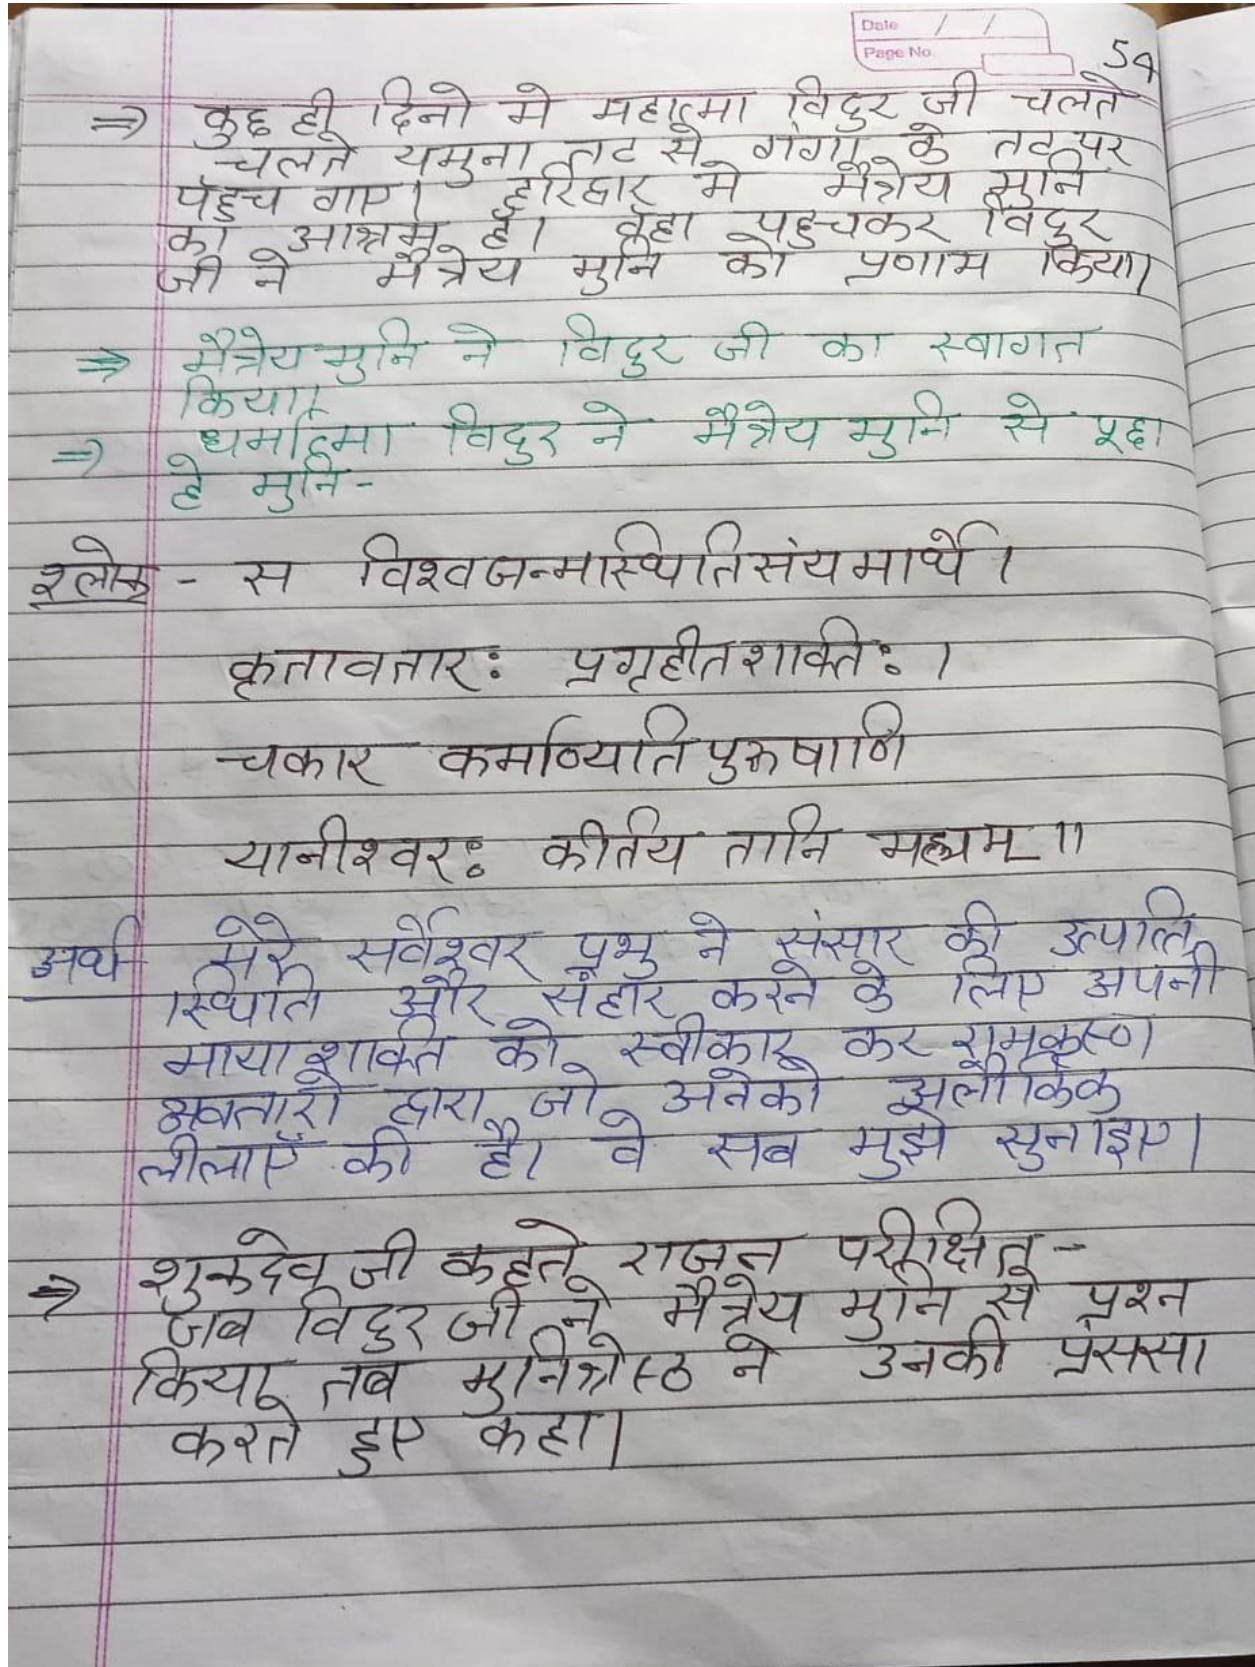 Date / /
Page No.
54
⇒ कुछ ही दिनो मे महात्मा विदुर जी चलते
चलते यमुना तट से गंगा के तट पर
पहुच गए। हरिद्वार मे मैत्रेय मुनि
का आश्रम है। वहा पहुचकर विदुर
जी ने मैत्रेय मुनि को प्रणाम किया।
⇒ मैत्रेय मुनि ने विदुर जी का स्वागत
किया।
⇒ धर्मात्मा विदुर ने मैत्रेय मुनि से पूछा
हे मुनि-
श्लोक - स विश्वजन्मास्थितिसंयमार्थे।
कृतावतारः प्रगृहीतशक्तिः।
चकार कर्माण्यतिपुरुषाणि
यानीश्वरः कीर्तय तानि मह्यम् ॥
अर्थ मेरे सर्वेश्वर प्रभु ने संसार की उत्पत्ति
स्थिति और संहार करने के लिए अपनी
माया शक्ति को स्वीकार कर रामकृष्ण
अवतारो द्वारा जो अनेको अलौकिक
लीलाएँ की है। वे सब मुझे सुनाइए।
⇒ शुकदेव जी कहते राजन परीक्षित -
जब विदुर जी ने मैत्रेय मुनि से प्रश्न
किया तब मुनिश्रेष्ठ ने उनकी प्रंससा
करते हुए कहा।